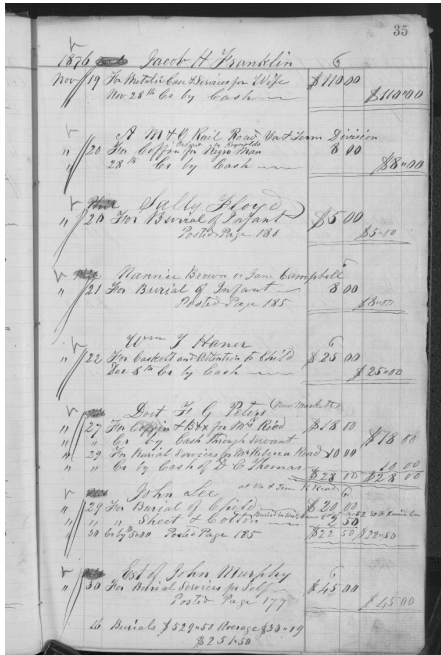 35
1876 Jacob H Franklin 6
Nov 19 For Metalic Case & Services for Wife $110 00
Nov 28th Cr by Cash $110=00
A M & O Rail Road Va & Tenn Division
" 20 For Coffin for Negro Man 8 00
28th Cr by Cash $8=00
Sally Floyd
" 20 For Burial of Infant $5 00
Posted Page 180 $5=00
Nannie Brown or Jane Campbell
" 21 For Burial of Infant 8 00
Posted Page 185 $8=00
Wm J Haner 6
" 22 For Caskett and Attention to Child $25 00
Dec 8th Cr by Cash $25=00
Doct F G (New Markett)
" 27 For Coffin & Box for Mr Read $18 00
" " Cr by Cash Through Servant $18 00
" 29 For Burial Services for Read 10 00
" " Cr by Cash of D C Thomas 10 00
$28 00 $28 00
John Lee at Va & Tenn R Road 6
" 29 For Burial of Child $20 00
" " " Sheet & Cotton 2 50
" 30 Posted Page 185 $22 50 $22=50
Est of John Murphy 6
" 30 For Burial Services for Self $45 00
Posted Page 177 $45 00
16 Burials $529=50 Average $33=19
$251=50